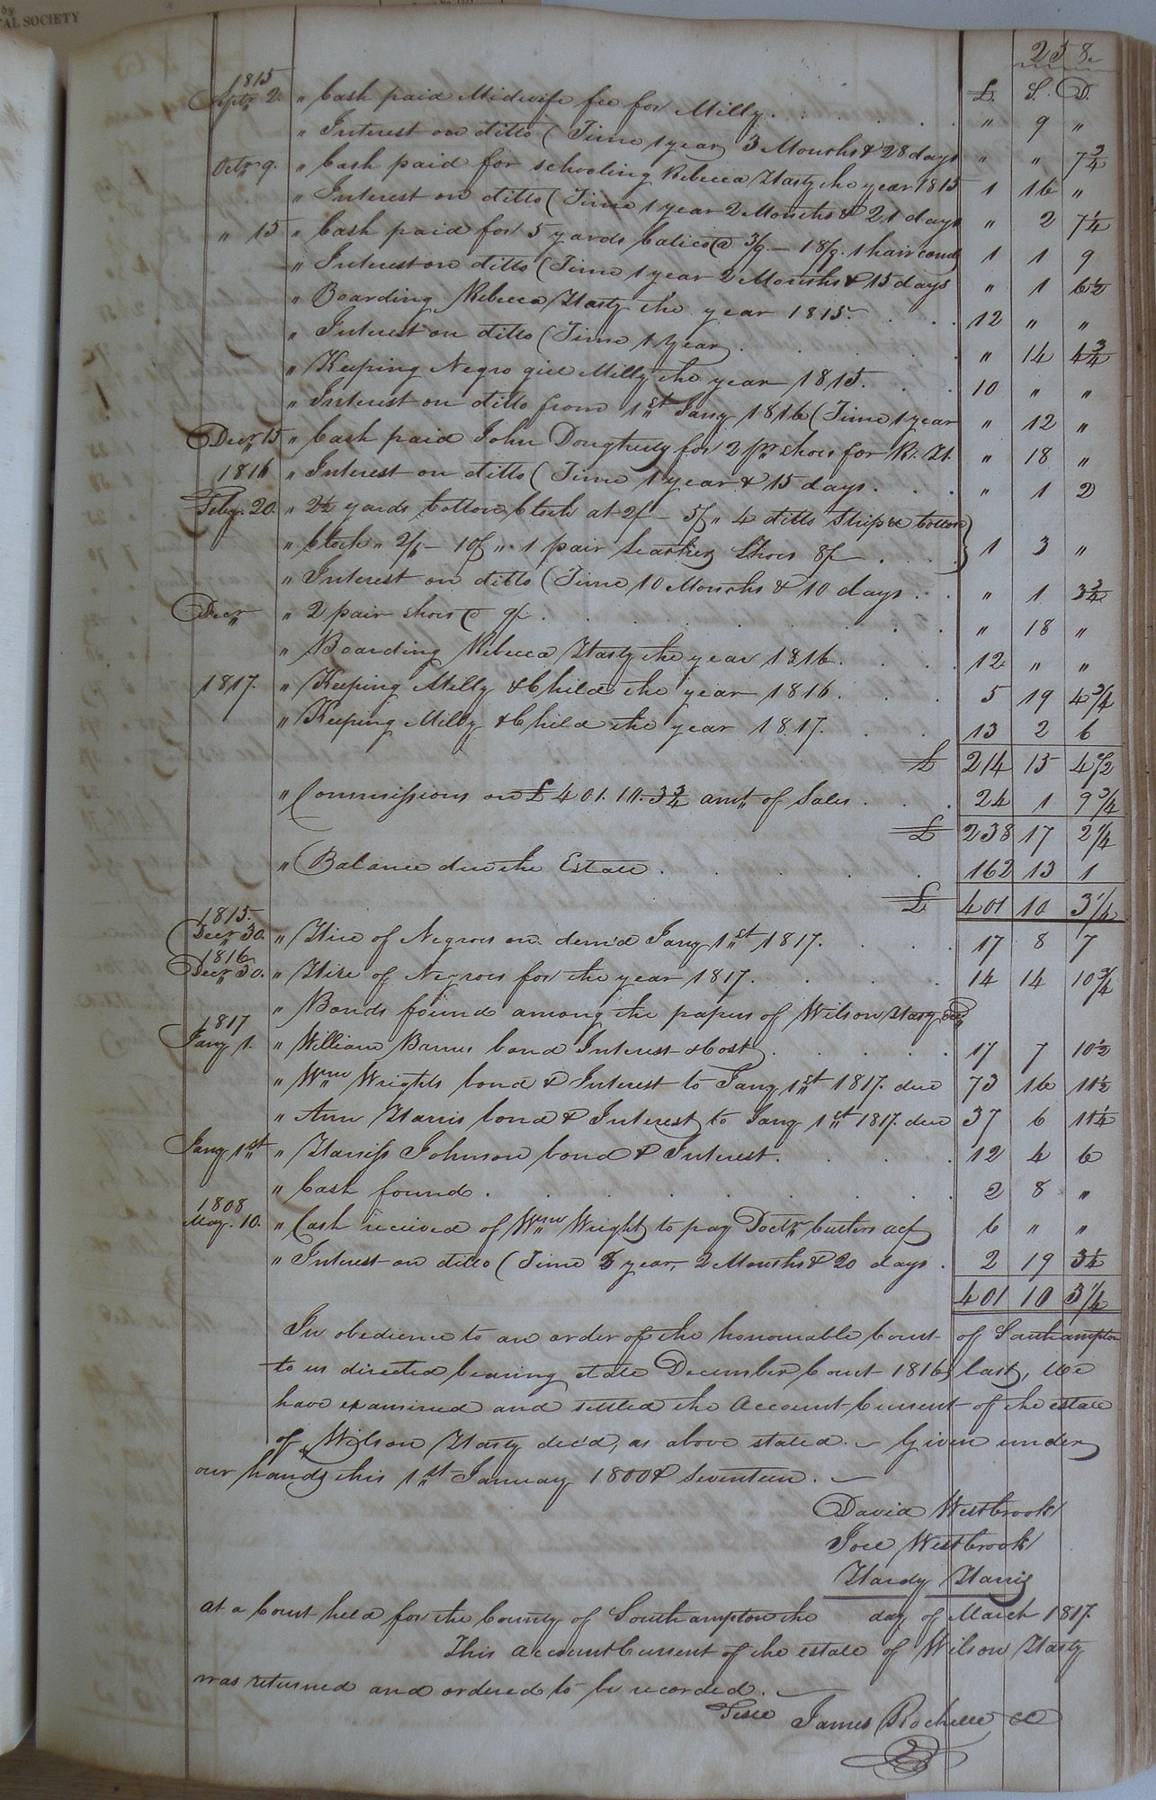 by
AL SOCIETY
258.
£. S. D.
1815
Septr 2. " Cash paid Midwife fee for Milly. " 9 "
" Interest on ditto (Time 1 year 3 Months & 28 days " " 7 3/4
Octr 9. " Cash paid for schooling Rebecca Hasty the year 1815 1 16 "
" Interest on ditto (Time 1 year 2 Months & 21 days " 2 7 1/4
" 15 " Cash paid for 5 yards Calico @ 3/9 – 18/9. 1 hair comb 1 1 9
" Interest on ditto (Time 1 year 2 Months & 15 days " 1 6 1/2
" Boarding Rebecca Hasty the year 1815. 12 " "
" Interest on ditto (Time 1 year) " 14 4 3/4
" Keeping Negro girl Milly the year 1815. 10 " "
" Interest on ditto from 1st Jany 1816 (Time 1 year " 12 "
Decr 15 " Cash paid John Dougherty for 2 pr shoes for R. H. " 18 "
1816 " Interest on ditto (Time 1 year & 15 days. " 1 2
Feby. 20. " 2 1/2 yards Cotton Cloth at 2/– 5/ " 4 ditto Stripe Cotton
" Cloth " 2/6 – 10/ " 1 pair Leather Shoes 8/– 1 3 "
" Interest on ditto (Time 10 Months & 10 days " 1 3 3/4
Decr " 2 pair shoes @ 9/– " 18 "
" Boarding Rebecca Hasty the year 1816. 12 " "
1817. " Keeping Milly & Child the year 1816. 5 19 4 3/4
" Keeping Milly & Child the year 1817. 13 2 6
£ 214 15 4 1/2
" Commissions on £401.10.3 3/4 amt of Sales 24 1 9 3/4
£ 238 17 2 1/4
" Balance due the Estate 162 13 1
£ 401 10 3 1/4
1815.
Decr 30. " Hire of Negroes on demd Jany 1st 1817. 17 8 7
1816
Decr 30. " Hire of Negroes for the year 1817. 14 14 10 3/4
" Bonds found among the papers of Wilson Hasty decd
1817
Jany 1. " William Barnes bond Interest & Cost 17 7 10 1/2
" Wm Wrights bond & Interest to Jany 1st 1817. due 73 16 11 1/2
" Ann Harris bond & Interest to Jany 1st 1817. due 37 6 11 1/4
Jany 1st " Harriss Johnson bond & Interest. 12 4 6
" Cash found. 2 8 "
1808
May. 10. " Cash received of Wm Wright to pay Doctr Custers act 6 " "
" Interest on ditto (Time 8 year, 2 Months & 20 days. 2 19 3 1/4
401 10 3 1/4
In obedience to an order of the honourable Court of Southampton
to us directed bearing date December Court 1816 last, We
have examined and settled the Account Current of the estate
of Wilson Hasty dec'd, as above stated. Given under
our hands this 1st January 1800 & seventeen.
David Westbrook
Joel Westbrook
Hardy Harris
At a Court held for the County of Southampton the day of March 1817.
This account Current of the estate of Wilson Hasty
was returned and ordered to be recorded.
Teste James Rochelle CC